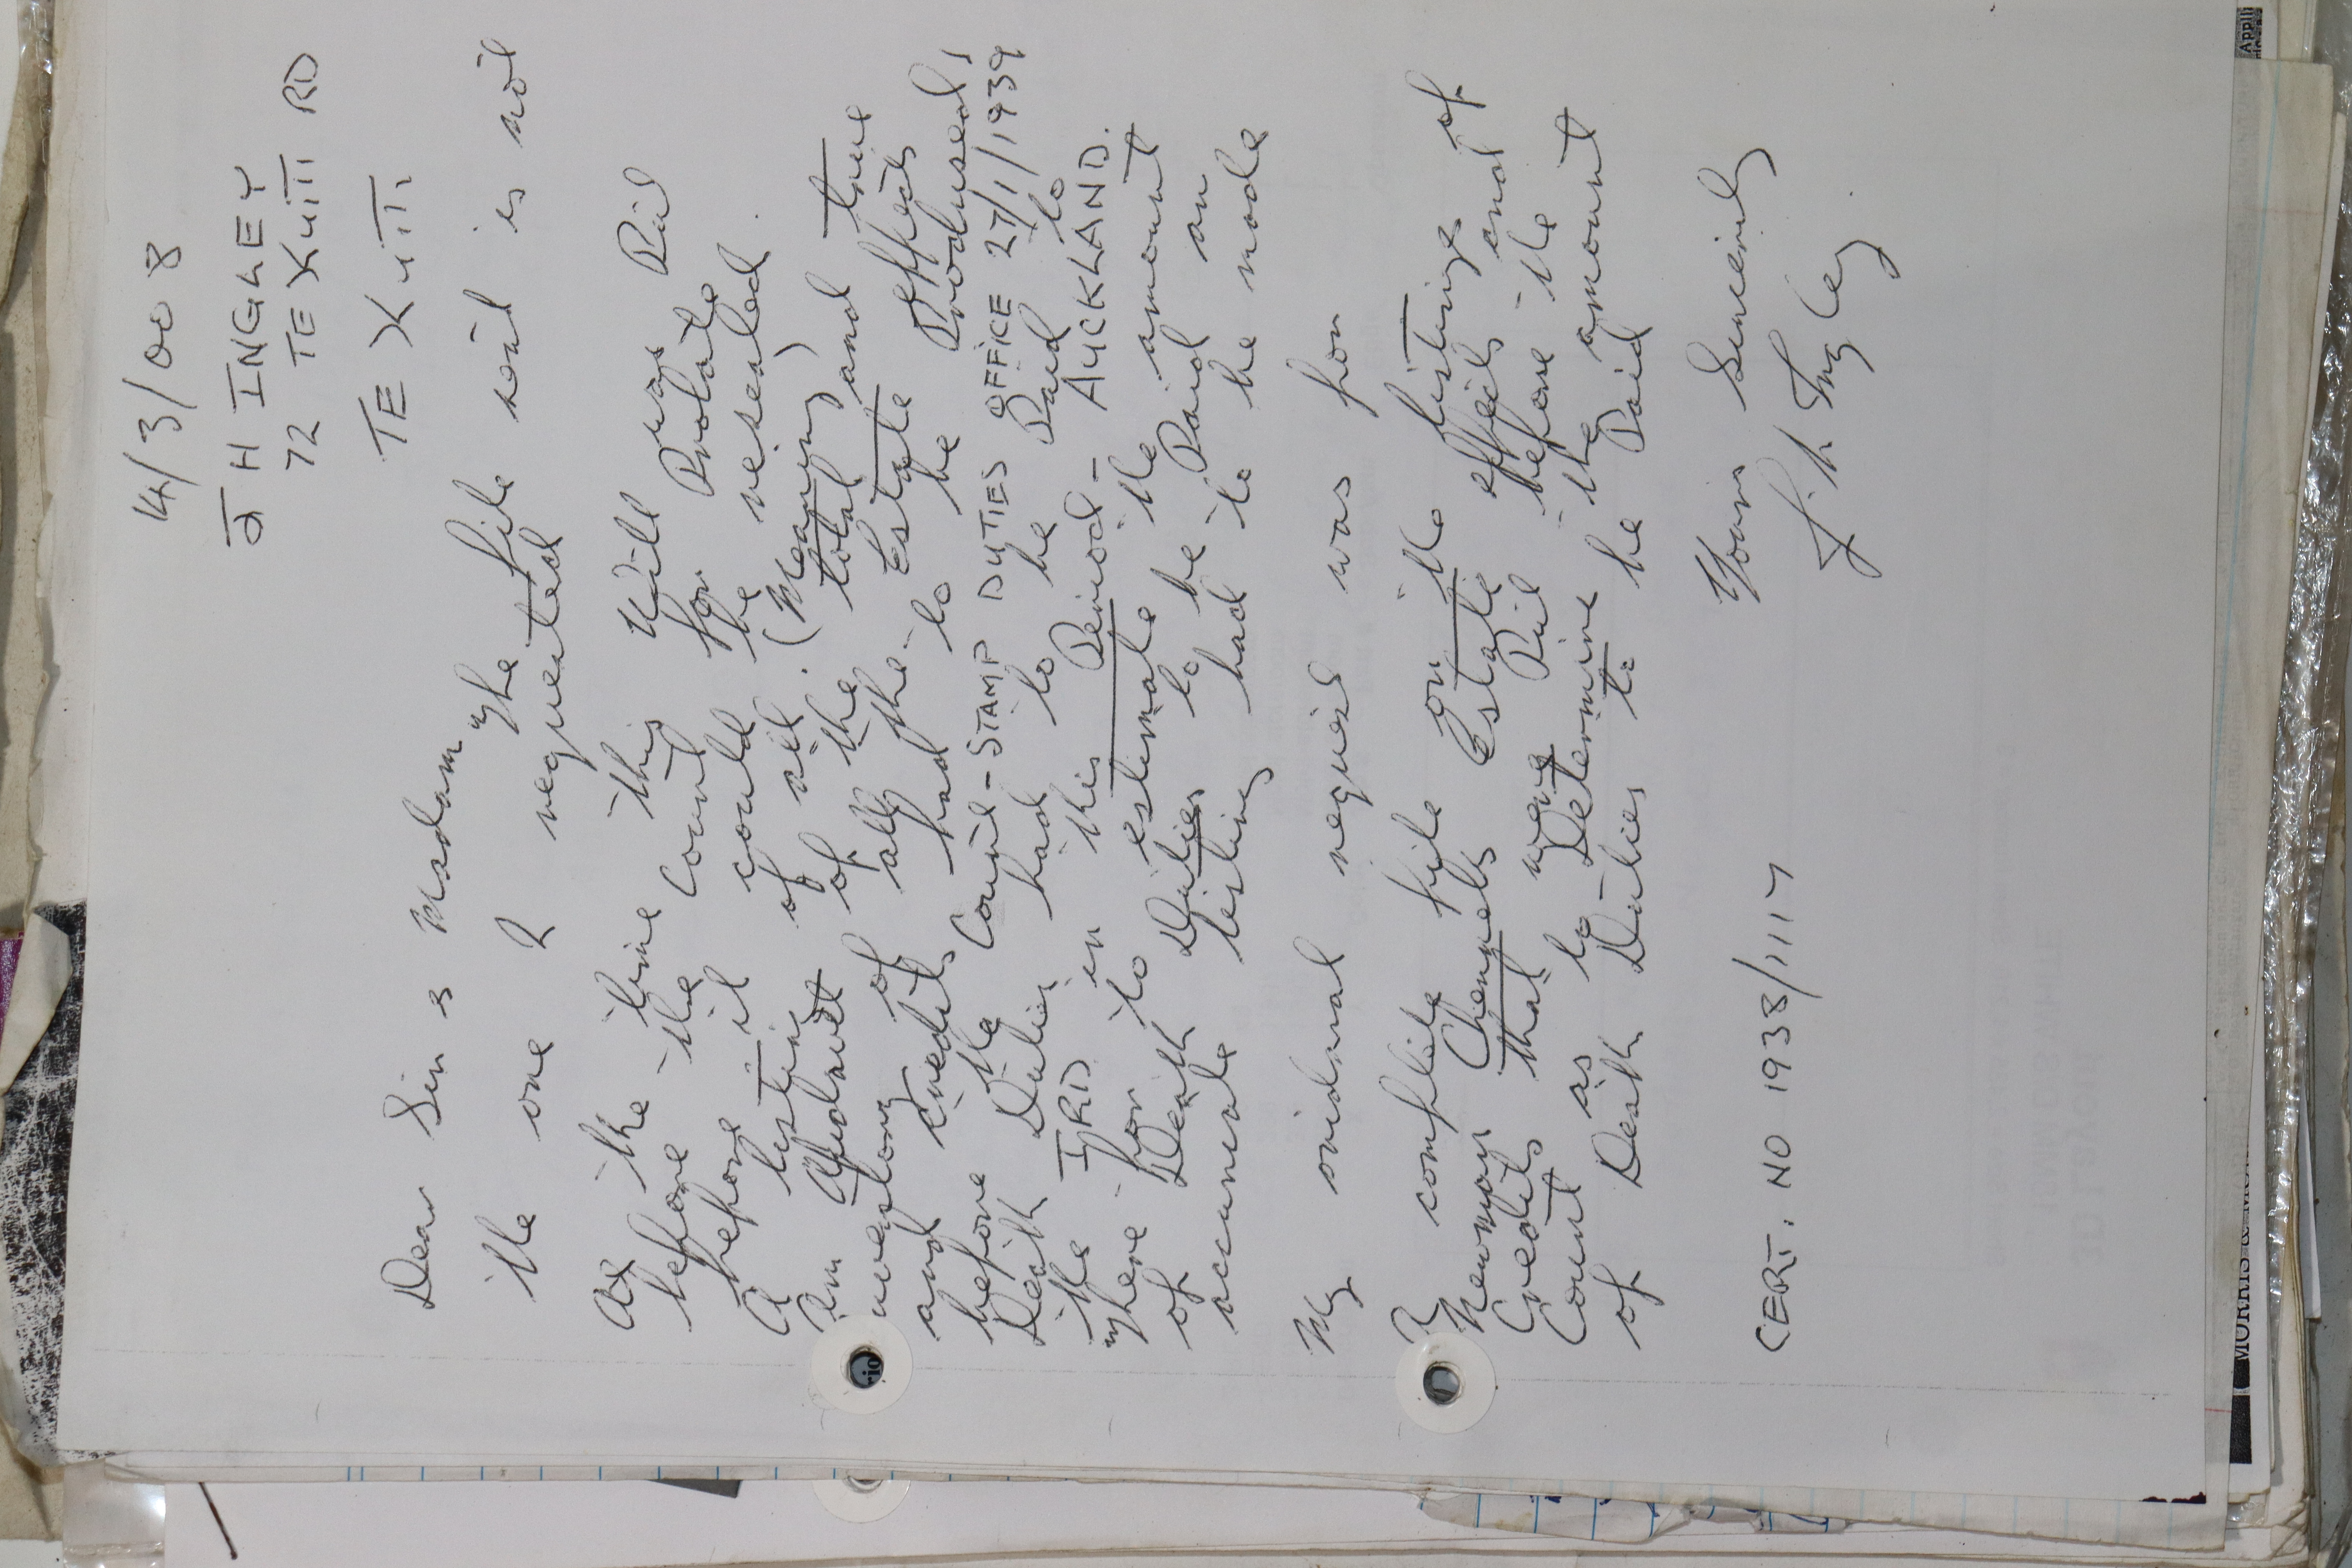 14/3/008
J H INGLEY
72 TE KUITI RD
TE KUITI
Dear Sir & Msdam, The file sent is not
the one I requested
At the time this Will was Put
before the Court for Probate
before it could be resealed.
A listing of all (Meaning)
An Afidavit of the total and true
all the Estate effects
and credits had to be Prodused,
before the Court - STAMP DUTIES OFFICE 27/1/1939
Death Duties had to be Paid to
the IRD in this Period - AUCKLAND.
where for to estimate the amount
of Death Duties to be Paid an
accurate listing had to be made
My oridnal request was for
A complete file on the listings of
Chempels Estate effects and of
Credits that were Put before the
Court as to Determine the amount
of Death Duties to be Paid
Yours Sincerely
J. H. Ingley
CERT. NO 1938/1117
MORRIS &